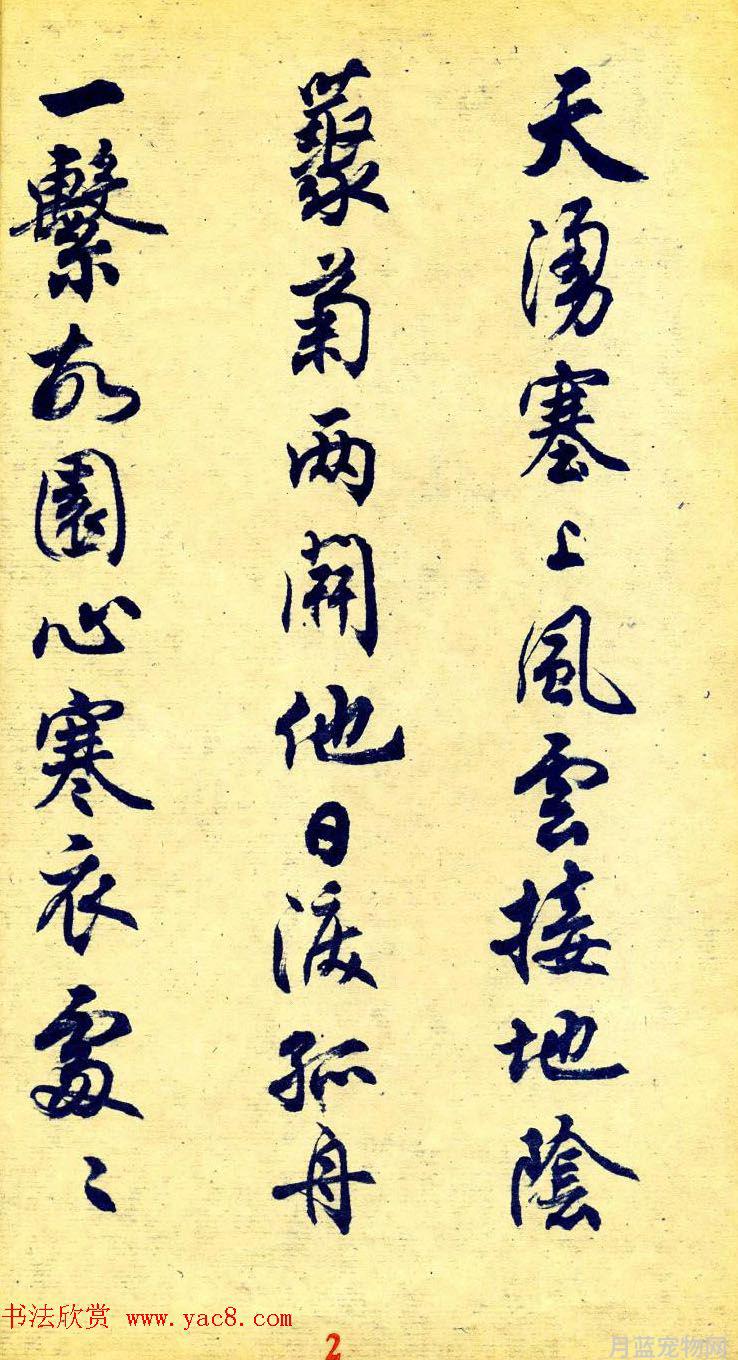 天湧塞上風雲接地陰
叢菊两開他日淚孤舟
一繫故園心寒衣處〻
书法欣赏 www.yac8.com
2
月蓝宠物网